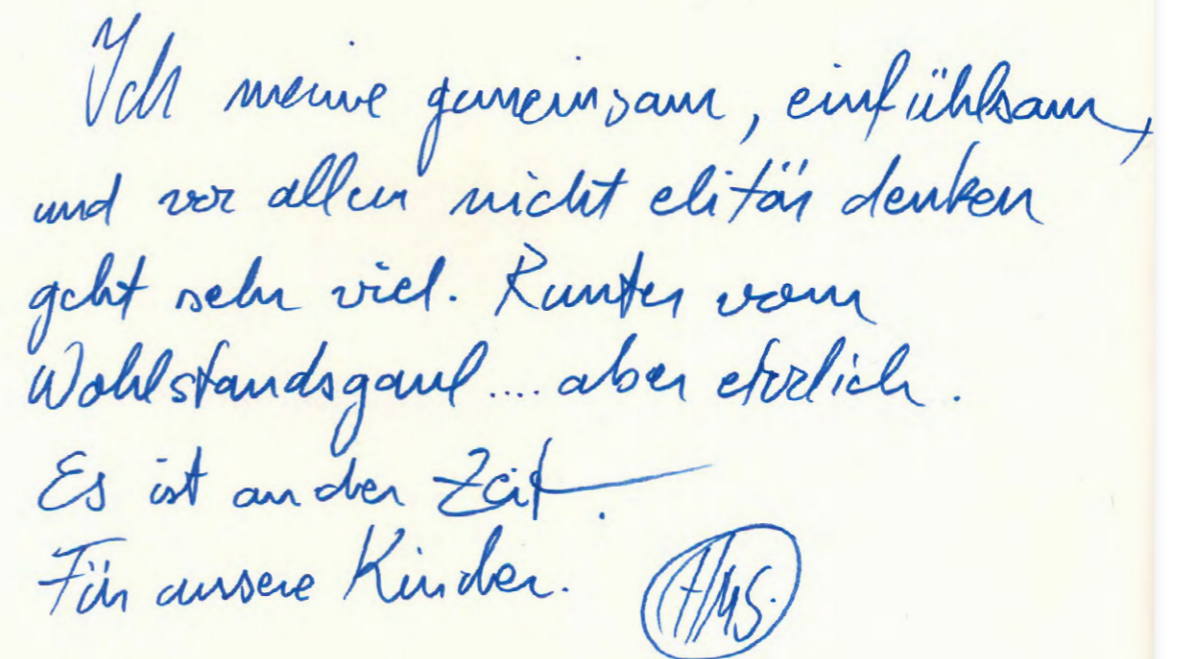 Ich meine gemeinsam, einfühlsam,
und vor allem nicht elitär denken
geht sehr viel. Runter vom
Wohlstandsgaul .... aber ehrlich.
Es ist an der Zeit.
Für unsere Kinder.